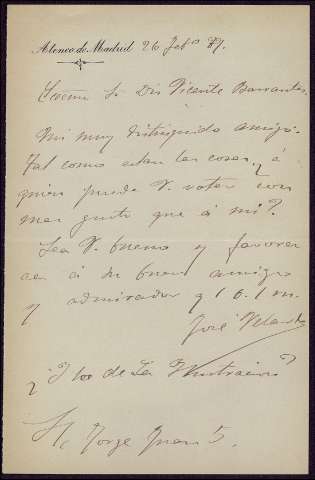 Ateneo de Madrid 26 Feb.º 87.
Excmo Sr Dn Vicente Barrantes
Mi muy distinguido amigo:
Tal como estan las cosas, ¿á
quien puede V. votar con
mas gusto que á mi?
Sea V. bueno y favorez
ca á su buen amigo
y admirador q l b. l m.
José Velarde
¿Y lo de La Ilustracion?
S/c Jorge Juan 5.